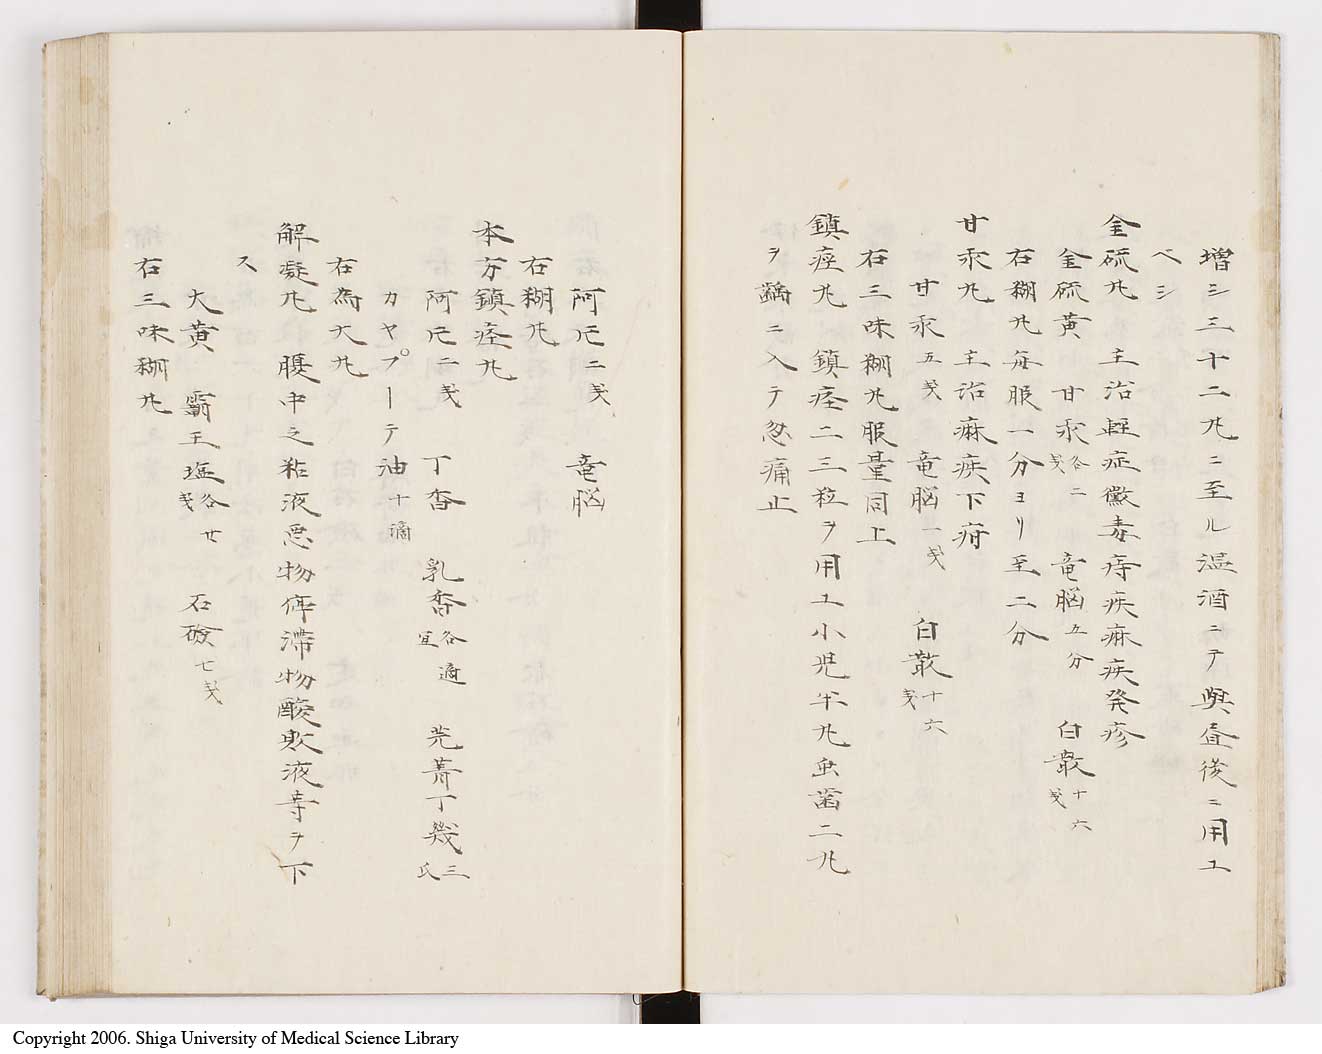 増シ三十二丸ニ至ル温酒ニテ與昼後ニ用ユ
ベシ
金硫丸 主治軽症黴毒痔疾痳疾発疹
金硫黄 甘汞各二戔 竜脳五分 白散十六戔
右糊丸毎服一分ヨリ至二分
甘汞丸 主治痳疾下疳
甘汞五戔 竜脳一戔 白散十六戔
右三味糊丸服量同上
鎮痙丸 鎮痙二三粒ヲ用ユ小児半丸虫歯二丸
ヲ齲ニ入テ忽痛止
阿片二戔 竜脳
右糊丸
本方鎮痙丸
阿片二戔 丁香 乳香各適宜 芫菁丁幾三氏
カヤプーテ油十滴
右為丸
解凝丸 腹中之粘液悪物停滞物酸敗液等ヲ下
ス
大黄 霸王塩各廿戔 石硷七戔
右三味糊丸
Copyright 2006. Shiga University of Medical Science Library